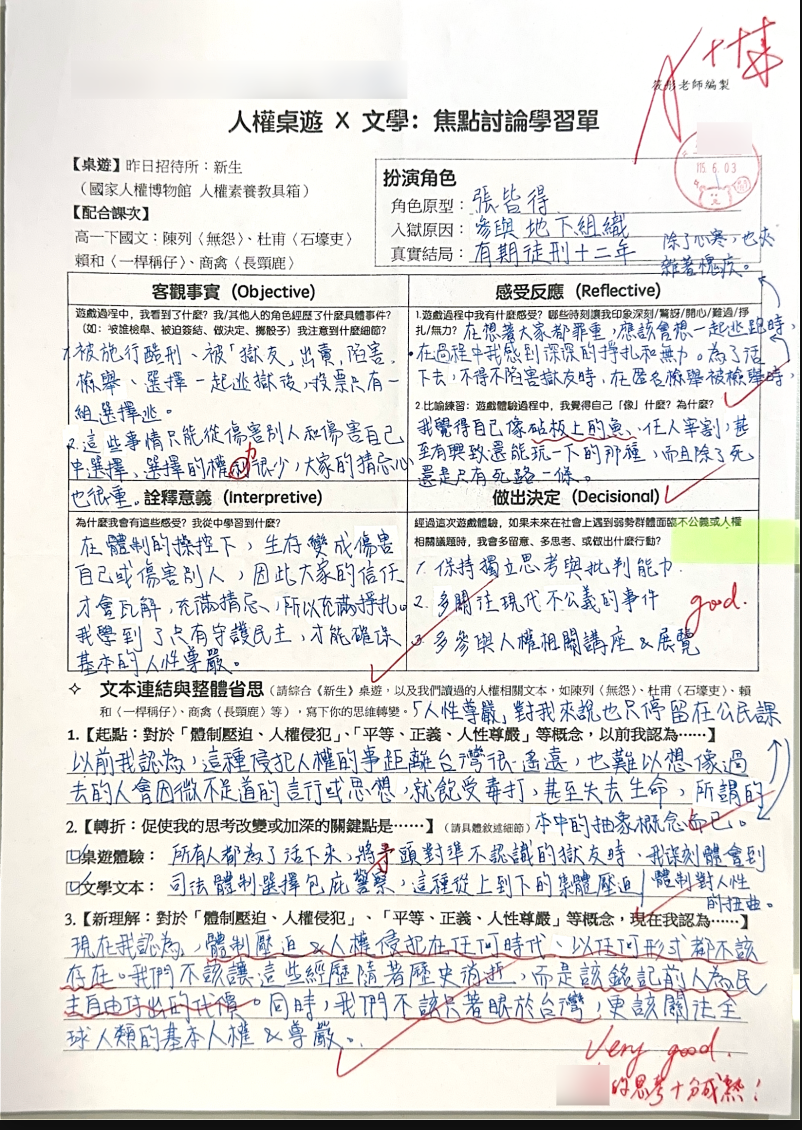 A++棒
筱彤老師編製
人權桌遊 X 文學：焦點討論學習單
115.6.03
【桌遊】昨日招待所：新生
（國家人權博物館 人權素養教具箱）
【配合課次】
高一下國文：陳列〈無怨〉、杜甫〈石壕吏〉
賴和〈一桿稱仔〉、商禽〈長頸鹿〉
扮演角色
角色原型：張皆得
入獄原因：參與地下組織
真實結局：有期徒刑十二年
客觀事實（Objective）
遊戲過程中，我看到了什麼？我/其他人的角色經歷了什麼具體事件？
（如：被誰檢舉、被迫簽結、做決定、擲骰子）我注意到什麼細節？
1.被施行酷刑、被「獄友」出賣,陷害,
檢舉、選擇一起逃獄後,投票只有一
組選擇逃。
2.這些事情只能從傷害別人和傷害自己
中選擇,選擇的權力很少,大家的猜忌心
也很重。
感受反應（Reflective）
1.遊戲過程中我有什麼感受？哪些時刻讓我印象深刻/驚訝/開心/難過/掙
扎/無力？在想著大家都罪重,應該會想一起逃跑時,
•在過程中我感到深深的掙扎和無力。為了活
下去,不得不陷害獄友時,在匿名檢舉被檢舉時,
除了心寒,也夾
雜著愧疚。
2.比喻練習：遊戲體驗過程中，我覺得自己「像」什麼？為什麼？
我覺得自己像砧板上的魚、任人宰割,甚
至有興致還能玩一下的那種,而且除了死
還是只有死路一條。
詮釋意義（Interpretive）
為什麼我會有這些感受？我從中學習到什麼？
在體制的操控下，生存變成傷害
自己或傷害別人，因此大家的信任
才會瓦解,充滿猜忌、所以充滿掙扎。
我學到了只有守護民主，才能確保
基本的人性尊嚴。
做出決定（Decisional）
經過這次遊戲體驗，如果未來在社會上遇到弱勢群體面臨不公義或人權
相關議題時，我會多留意、多思考、或做出什麼行動？
1. 保持獨立思考與批判能力.
2. 多關注現代不公義的事件
3. 多參與人權相關講座&展覽
good.
✧ 文本連結與整體省思（請綜合《新生》桌遊，以及我們讀過的人權相關文本，如陳列〈無怨〉、杜甫〈石壕吏〉、賴
和〈一桿稱仔〉、商禽〈長頸鹿〉等），寫下你的思維轉變。
1.【起點：對於「體制壓迫、人權侵犯」、「平等、正義、人性尊嚴」等概念，以前我認為……】
以前我認為,這種侵犯人權的事距離台灣很遙遠，也難以想像過
去的人會因微不足道的言行或思想，就飽受毒打，甚至失去生命，所謂的
「人性尊嚴」對我來說也只停留在公民課
本中的抽象概念而已。
2.【轉折：促使我的思考改變或加深的關鍵點是……】（請具體敘述細節）
☑桌遊體驗：所有人都為了活下來,將矛頭對準不認識的獄友時,我深刻體會到
體制對人性
的扭曲。
☑文學文本：司法體制選擇包庇警察,這種從上到下的集體壓迫
3.【新理解：對於「體制壓迫、人權侵犯」、「平等、正義、人性尊嚴」等概念，現在我認為……】
現在我認為,體制壓迫&人權侵犯在任何時代、以任何形式都不該
存在。我們不該讓這些經歷隨著歷史消逝,而是該銘記前人為民
主自由付出的代價。同時,我們不該只著眼於台灣,更該關注全
球人類的基本人權&尊嚴。
Very good.
的思考十分成熟！